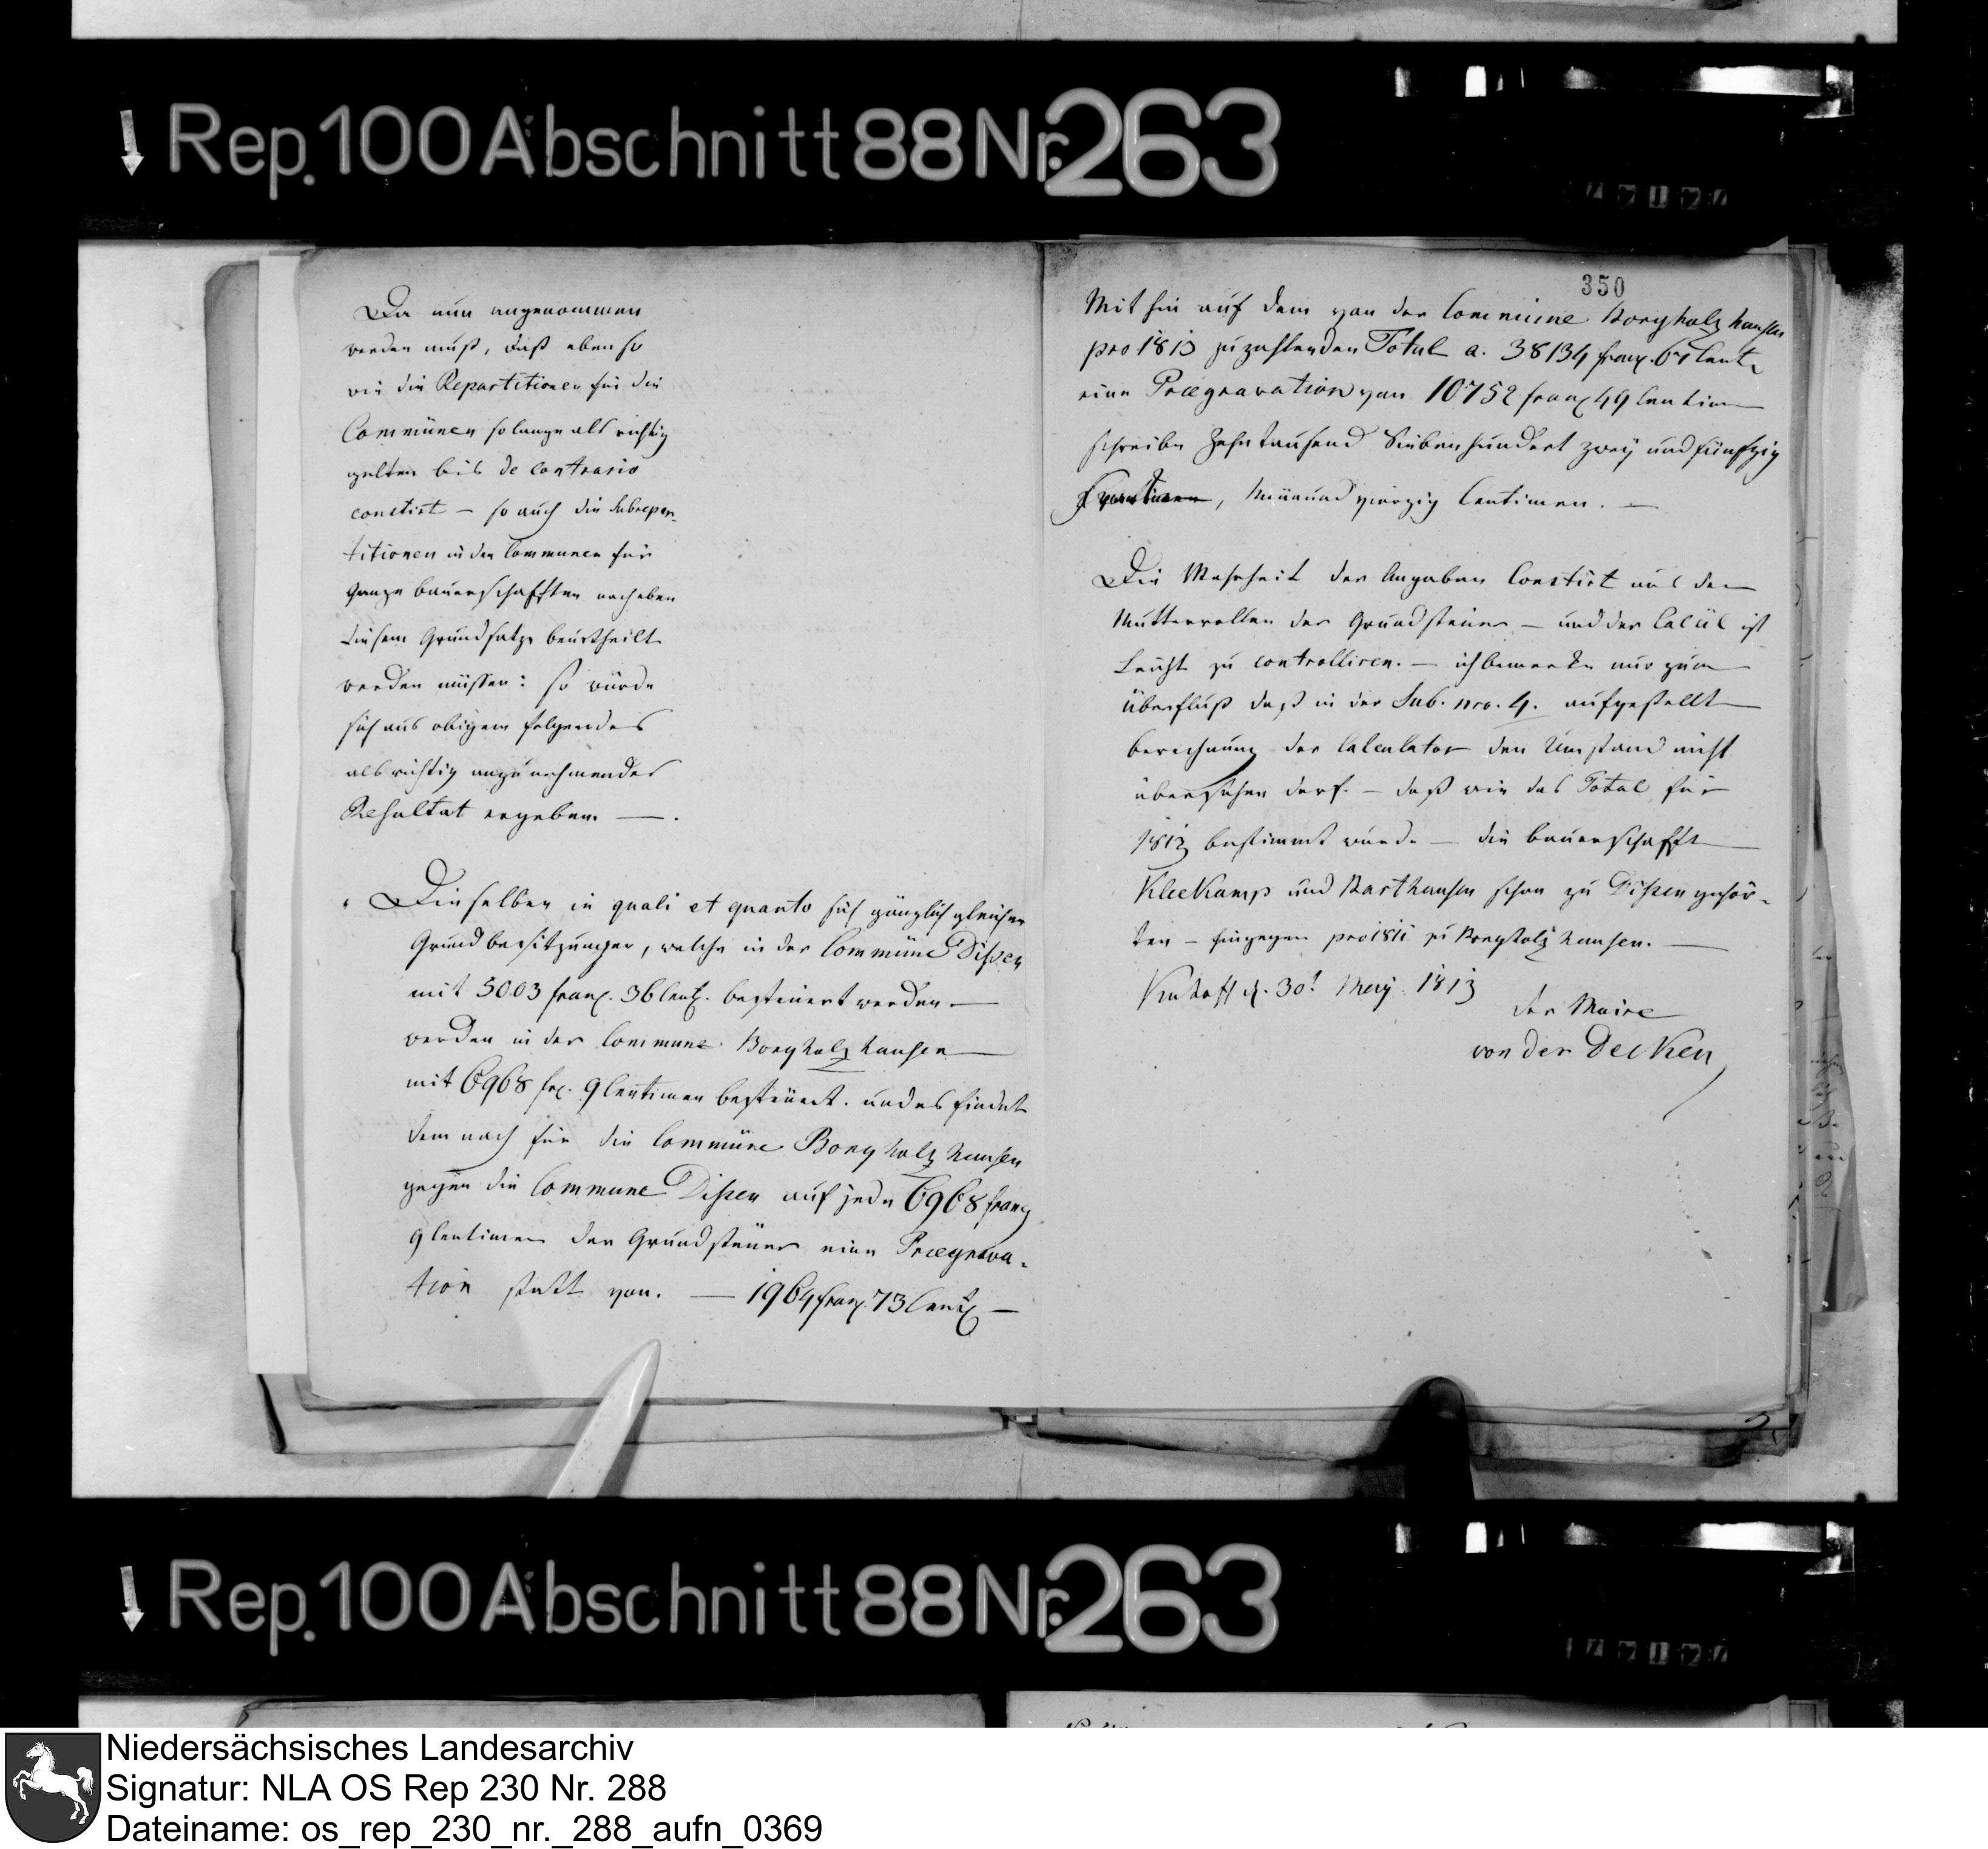 Rep. 100 Abschnitt 88 Nr. 263
Da nun angenommen
werden muß, daß eben so
wie die Repartitionen für die
Communen so lange als richtig
gelten bis de contrario
constirt – so auch die Subrepar-
titionen in den Communen für
ganze Bauerschafften nach eben
diesem Grundsatze beurtheilt
werden müssen: so würde
sich aus obigem folgendes
als richtig anzunehmendes
Resultat ergeben. —.
Dieselben in quali et quanto sich gänzlich gleichen
Grundbesitzungen, welche in der Commüne Dißen
mit 5003 franc. 36 Cent. besteuert werden —
werden in der Commune Borgholzhausen —
mit 6968 frc. 9 Centimen besteuert. und es findet
demnach für die Commüne Borgholzhausen
gegen die Commune Dißen auf jede 6968 franc
9 Centimen der Grundsteuer eine Praegrava-
tion statt von. — 1964 franc. 73 Cent. —
350
Mithin auf dem von der Commüne Borgholzhausen
pro 1813 zu zahlenden Total a. 38134 franc. 67 Cent.
eine Praegravation von 10752 franc 49 Centim
schreibe Zehntausend Siebenhundert zwey und fünfzig
, Neunund vierzig Centimen. —
Die Wahrheit der Angaben Constirt aus den
Mutterrollen der Grundsteuer – und der Calcül ist
Leicht zu controlliren. — ich bemerke nur zum
Überfluß daß in der Sub. nro. 4. aufgestellt
berechnung der Calculator den Umstand nicht
übersehen darf. – daß wie das Total für
1813 bestimmt wurde — die Bauerschafft
Kleekamp und Barthausen schon zu Dißen gehör-
ten – hingegen pro 1811 zu Borgholzhausen. —
d. 30t. May. 1813
der Maire
von der Decken
Rep. 100 Abschnitt 88 Nr. 263
Niedersächsisches Landesarchiv
Signatur: NLA OS Rep 230 Nr. 288
Dateiname: os_rep_230_nr._288_aufn_0369